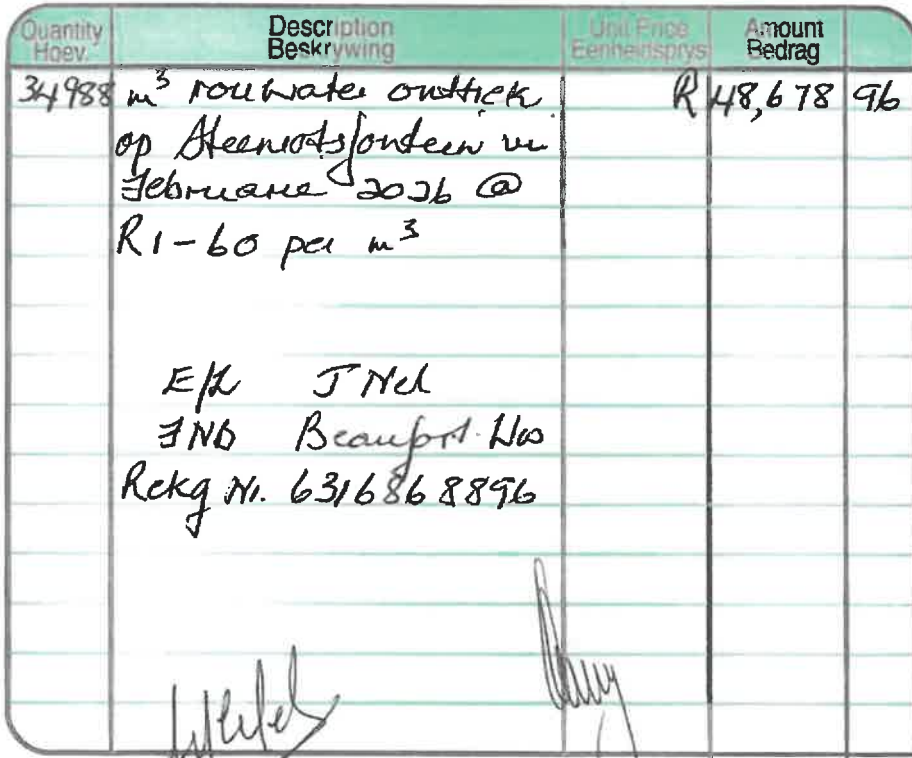 Quantity Hoev. Description Beskrywing Unit Price Eenheidsprys Amount Bedrag
34988 m³ rouwater onttrek R 48,678 96
op Steenrotsfontein in
Februarie 2026 @
R1-60 per m³
E/L J Nel
FNB Beaufort-Wes
Rekg Nr. 6316868896